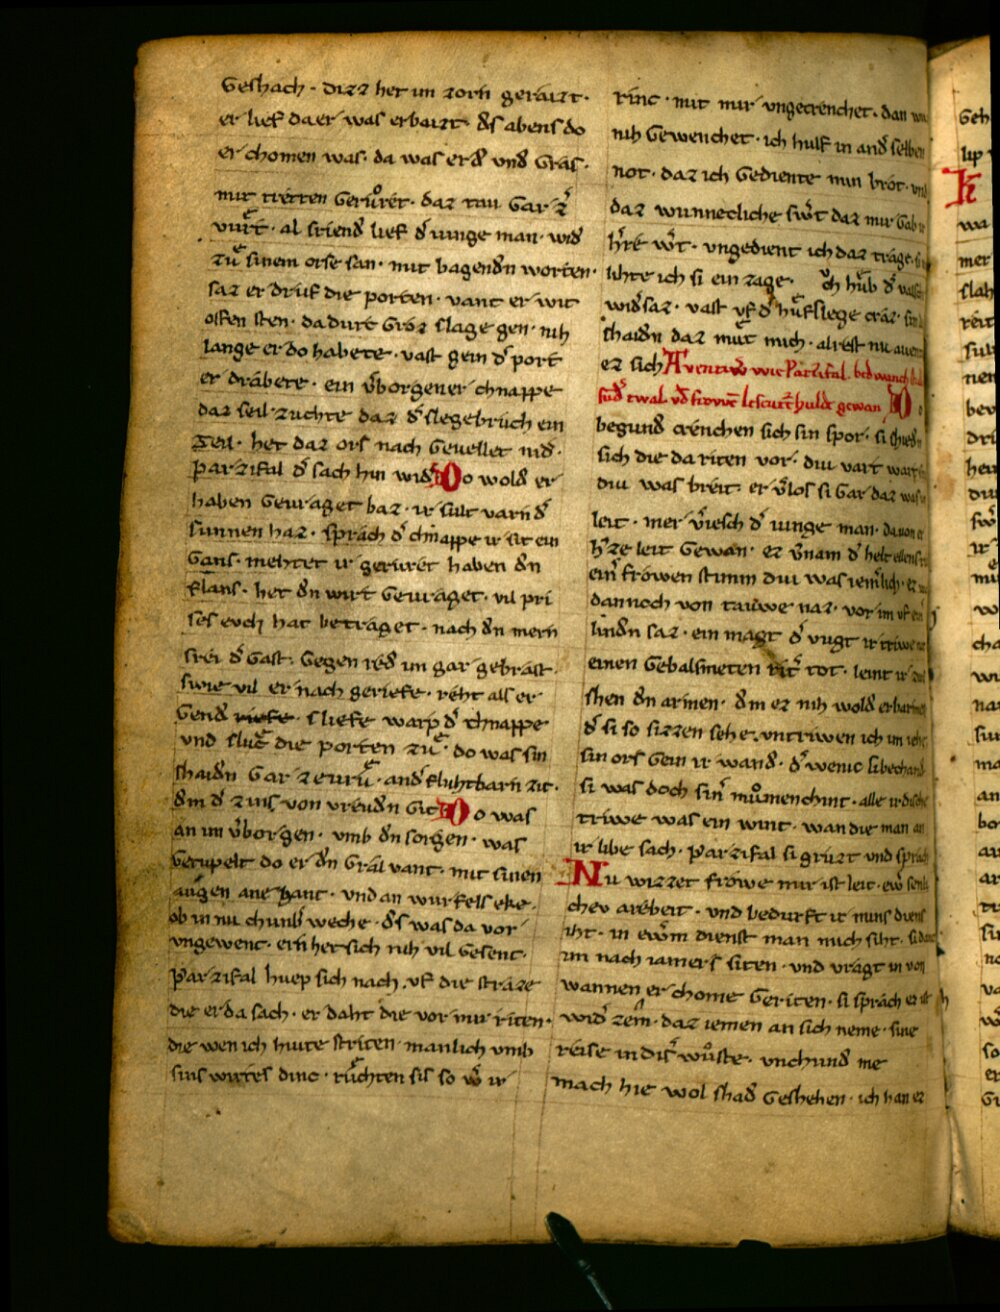 Geshach · dizz het im zorn geraizt ·
er lief da er was erbaizt · ds abens do
er chomen was · da was erd vnd Gras ·
mit tretten Gerůret · daz tau Gar z
vurt · al sriend lief d iunge man · wid
zů sinem orse san · mit bagendn worten ·
saz er drůf die porten · vant er wit
offen sten · da durc Groz slage gen · nih
lange er do habete · vast gein d port
er drabete · ein vborgener chnappe
daz seil zuchte daz d slegebruch ein
Teil · het daz ors nach Geuellet nid ·
Parzifal d sach hin wid Do wold er
haben Geuraget baz · ir sult varn d
sunnen haz · sprach d chnappe ir sit ein
Gans · mehtet ir gerůret haben dn
flans · het dn wirt Geuraget · vil pri
ses evch hat betraget · nach dn mern
srei d Gast · Gegen red im gar gebrast ·
swie vil er nach geriefe · reht als er
Gend riefe · sliefe warp d chnappe
vnd slůc die porten zů · do was sin
shaidn Gar ze vrů · and fluhtbarn zit ·
dm d zins von vreudn Git Do was
an im vborgen · vmb dn sorgen · was
Gerupelt do er dn Gral vant · mit sinen
augen ane hant · vnd an wurfels eke ·
ob in nu chumb weche · ds was da vor
vngewent · ern het sich nih vil Gesent ·
Parzifal huep sich nach · vf die straze
die er da sach · er daht die vor mir riten ·
die wen ich huite striten · manlich vmb
sins wirtes dinc · růchten sis so wr ir
rinc · mit mir vngecrenchet · dan
nih Gewenchet · ich hulf in and selben
not · daz ich Gediente min brot · vnd
daz wunnecliche swt daz mir Gab
hre wt · vngedient ich daz trage ·
lihte ich si ein zage · ch hůb d
widsaz · vast vf d hůfslege craz ·
shaidn daz můt mich · alrest nu
ez sich Aventiwr wie Parzifal
sund twal vnd frowen Iescuten hulde gewan Do
begund crenchen sich sin spor · si
sich die da riten vor · diu vart
diu was breit · er vlos si Gar daz was
leit · mer vriesch d iunge man · da von er
hrze leit Gewan · ez vnam d helt
ein frowen stimm diu was iemrlich ·
dannoch von tauwe naz · vor im vf
lindn saz · ein magt d vugt ir triwe
einen Gebalsmeten ritr tot · leint ir
shen dn armen · dm ez nih wold erbarmen
d si so sizzen sehe · vntriwen ich im
sin ors Gein ir wand · d wenic
si was doch sinr můmen chint · alle
triwe was ein wint · wan die man an
ir libe sach · Parzifal si grůzt vnd sprach
Nu wizzet frowe mir ist leit ·
chev arebeit · vnd bedurft ir mins diens
iht · in ewrm dienst man mich siht ·
im nach iamers siten · vnd vragt in von
wannen er chome Geriten · si sprach ez
wid zem · daz iemen an sich neme · sine
reise in disr wůste · vnchund me
mach hie wol shad Geshehen · ich han ez